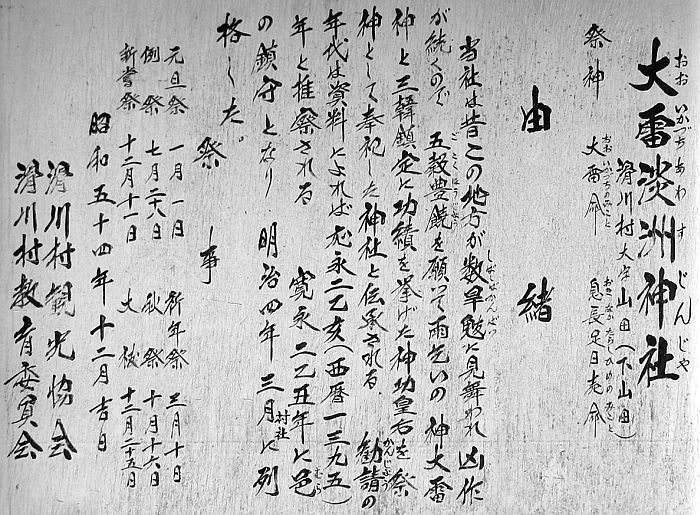 大雷淡洲神社
おお いかつち あわ す じんじゃ
滑川村大字山田(下山田)
祭神 大雷命 息長足日売命
おおいかつちのみこと おきながたらしひめのみこと
由緒
当社は昔この地方が数旱魃に見舞われ凶作
しばしばかんばつ
が続くので 五穀豊饒を願いて雨乞いの神大雷
ごこくほうじょう
神と三韓鎮定に功績を挙げた神功皇后を祭
神として奉祀した神社と伝承される 勧請の
かんじょう
年代は資料によれば応永二乙亥(西暦一三九五)
年と推察される 寛永二乙丑年に邑
むら
の鎮守となり 明治四年三月に村社に列
格した。
祭事
元旦祭 一月一日 祈年祭 三月十日
例祭 七月二八日 秋祭 十月十六日
新嘗祭 十二月十一日 大祓 十二月二十五日
昭和五十四年十二月吉日
滑川村観光協会
滑川村教育委員会